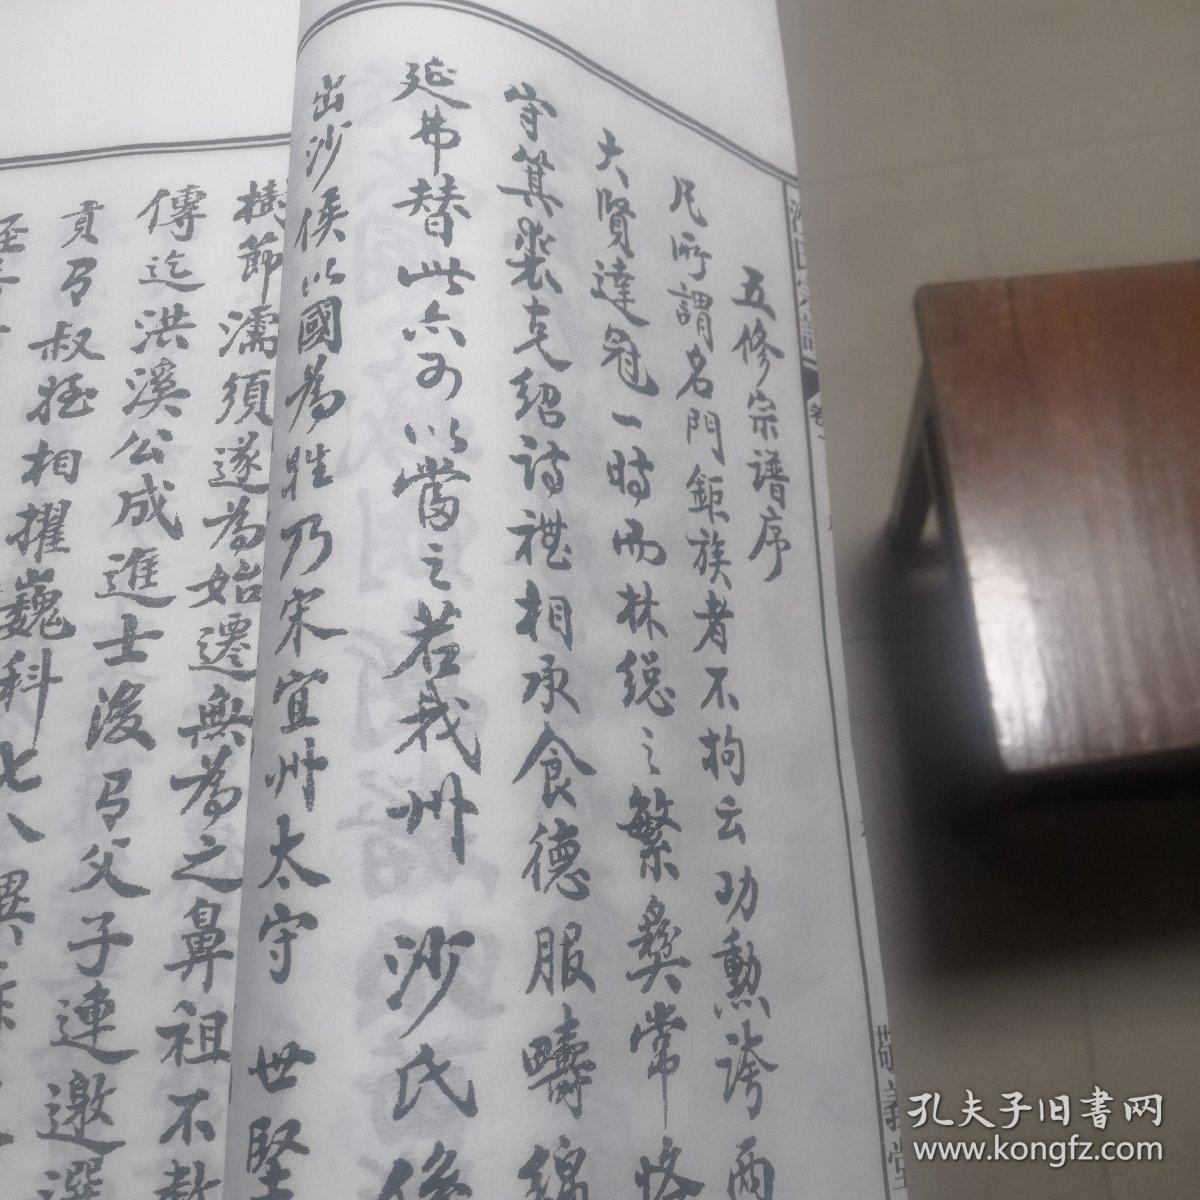 五修宗谱序
凡所謂名門鉅族者不拘云功勲誇
大賢達冠一時而林總之繁彝常
守箕裘克绍詩禮相承食德服疇綿
延弗替此亦可以當之若我州沙氏
出沙侯以國為姓乃宋宣州太守世堅
樹節濡須遂為始遷無為之鼻祖不数
傳迄洪溪公成進士後有父子連遨選
貢有叔姪相擢巍科
敬義堂
孔夫子旧書网
www.kongfz.com